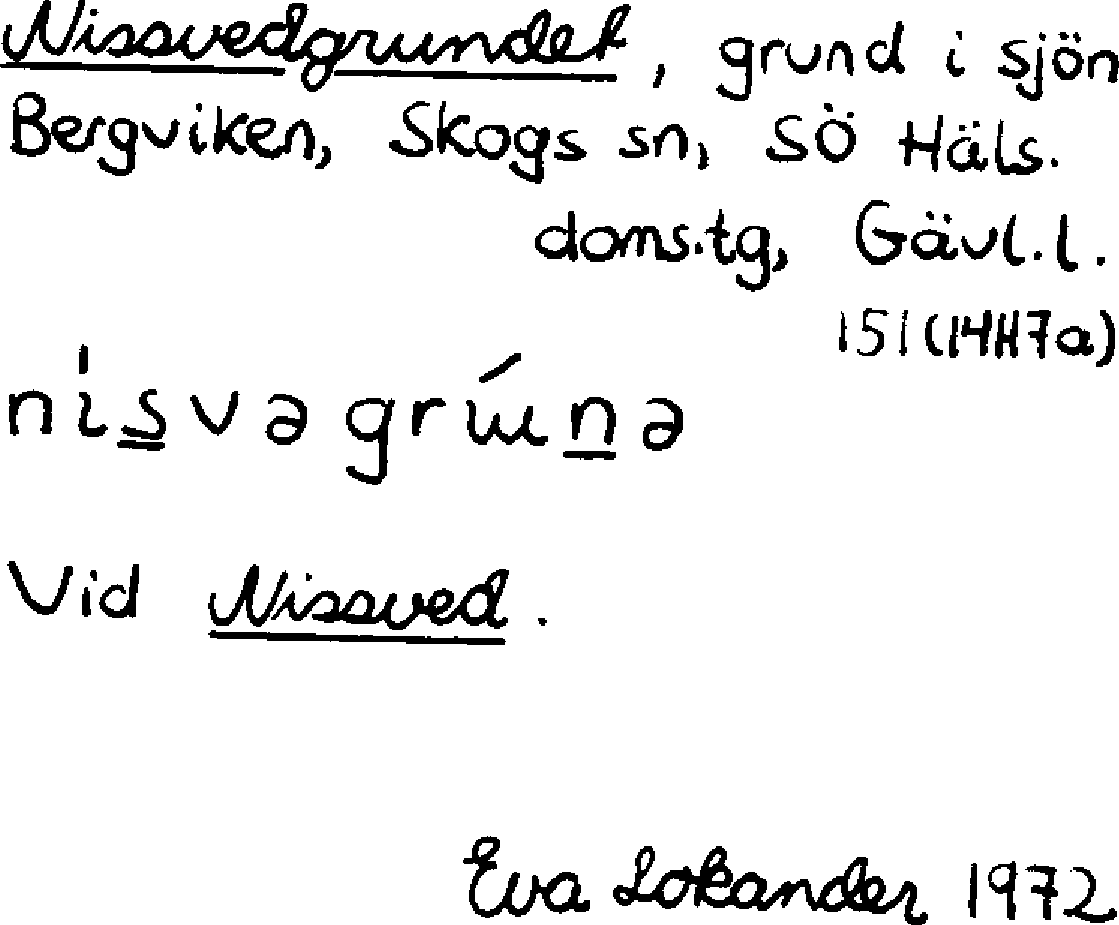 Nissvedgrundet, grund i sjön
Bergviken, Skogs sn, SÖ Häls.
doms.tg, Gävl.l.
151 (14H7a)
nìs̳vəgrɯ́n̲ə
Vid Nissved.
Eva Lokander 1972